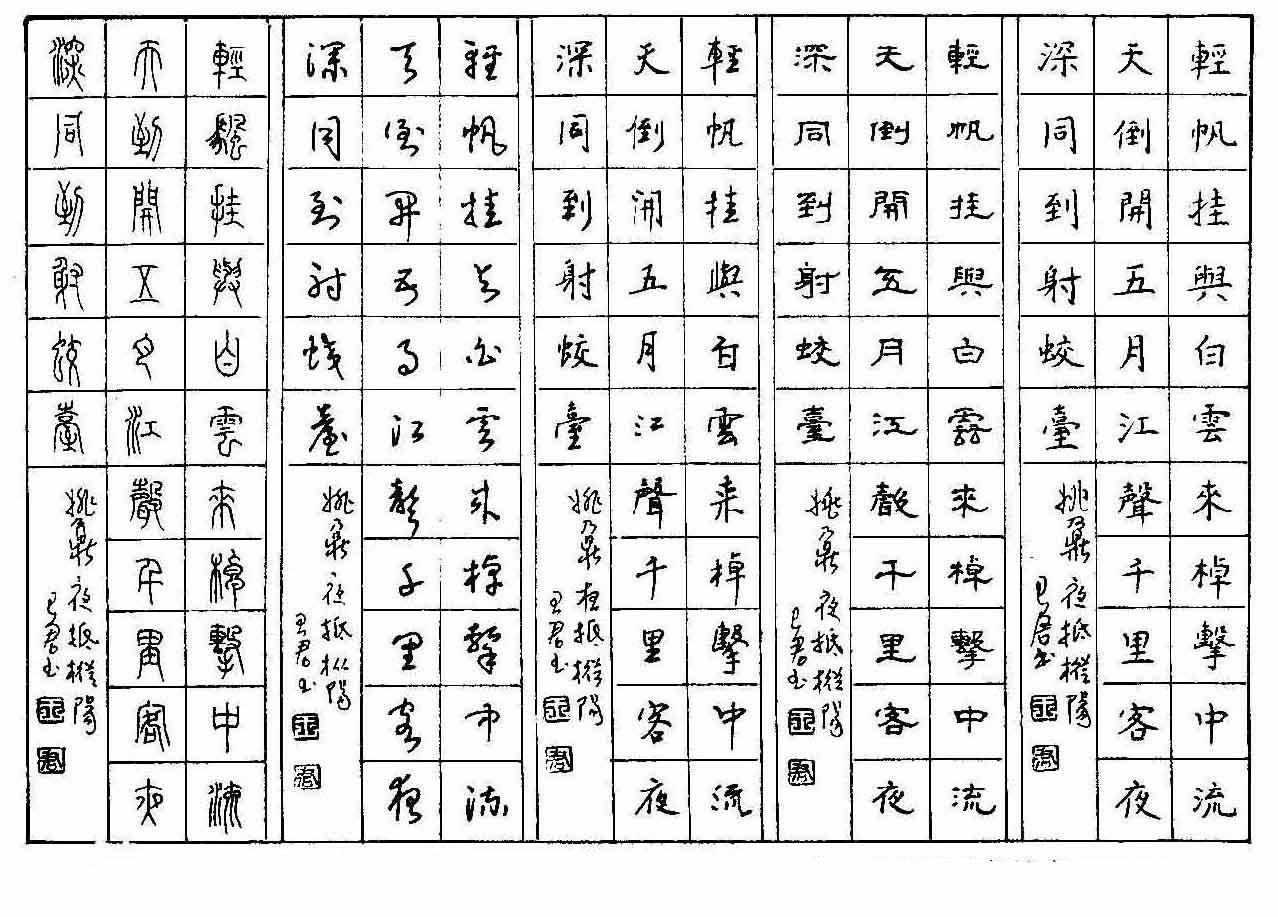 輕帆挂與白雲來棹擊中流
天倒開五月江聲千里客夜
深同到射蛟臺
姚鼐夜抵樅陽
君书
輕帆挂與白雲來棹擊中流
天倒開五月江聲千里客夜
深同到射蛟臺
姚鼐夜抵樅陽
君书
輕帆挂與白雲來棹擊中流
天倒開五月江聲千里客夜
深同到射蛟臺
姚鼐夜抵樅陽
君书
輕帆挂與白雲來棹擊中流
天倒開五月江聲千里客夜
深同到射蛟臺
姚鼐夜抵樅陽
君书
輕颿挂與白雲來棹擊中流
天到開五月江聲千里客夜
深同到射蛟臺
姚鼐夜抵樅陽
君书